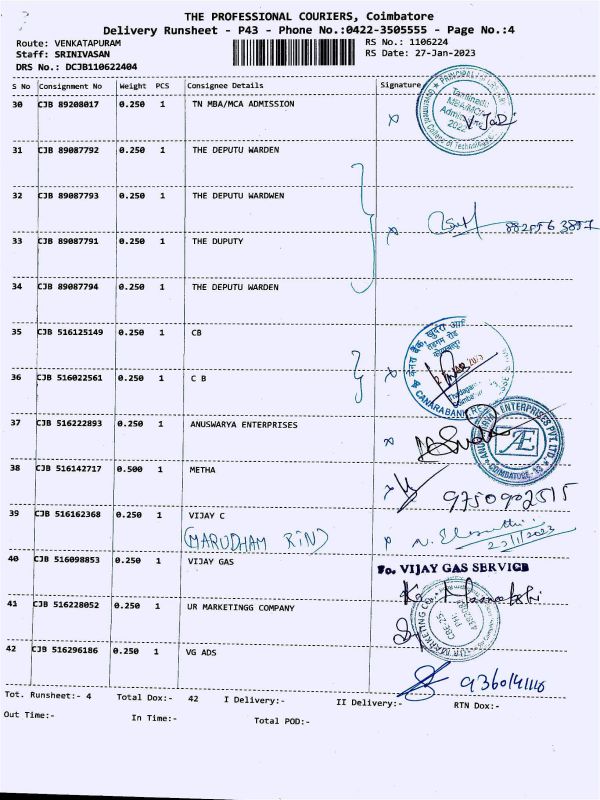 THE PROFESSIONAL COURIERS, Coimbatore
Delivery Runsheet - P43 - Phone No.:0422-3505555 - Page No.:4
Route: VENKATAPURAM RS No.: 1106224
Staff: SRINIVASAN RS Date: 27-Jan-2023
DRS No.: DCJB110622404
S No Consignment No Weight PCS Consignee Details Signature
30 CJB 89208017 0.250 1 TN MBA/MCA ADMISSION
31 CJB 89087792 0.250 1 THE DEPUTU WARDEN
32 CJB 89087793 0.250 1 THE DEPUTU WARDWEN
33 CJB 89087791 0.250 1 THE DUPUTY
34 CJB 89087794 0.250 1 THE DEPUTU WARDEN
35 CJB 516125149 0.250 1 CB
36 CJB 516022561 0.250 1 C B
37 CJB 516222893 0.250 1 ANUSWARYA ENTERPRISES
38 CJB 516142717 0.500 1 METHA
9750902515
39 CJB 516162368 0.250 1 VIJAY C
(MARUDHAM RIN)
40 CJB 516098853 0.250 1 VIJAY GAS
VIJAY GAS SERVICE
41 CJB 516228052 0.250 1 UR MARKETINGG COMPANY
42 CJB 516296186 0.250 1 VG ADS
Tot. Runsheet:- 4 Total Dox:- 42 I Delivery:- II Delivery:- RTN Dox:-
Out Time:- In Time:- Total POD:-